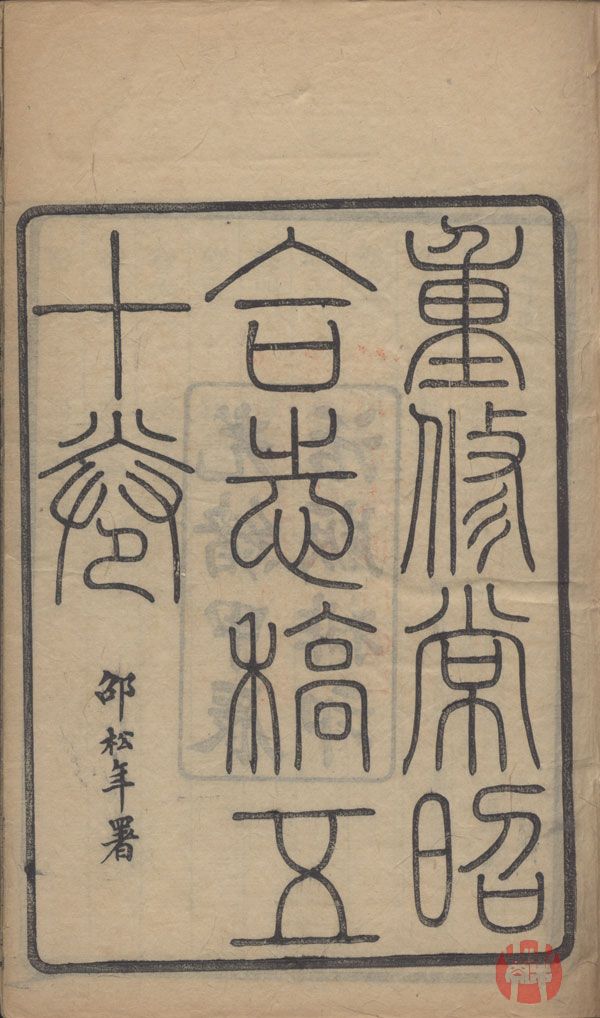 重修常昭
合志稿五
十卷
邵松年署